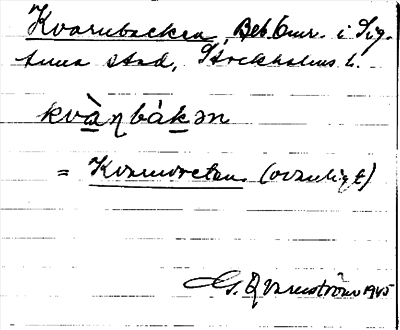 Kvarnbacken, Beb.Omr. i Sig-
tuna stad, Stockholms l.
kvàŋbákən
= Kvarnvreten (ovanligt)
G. Q 1945